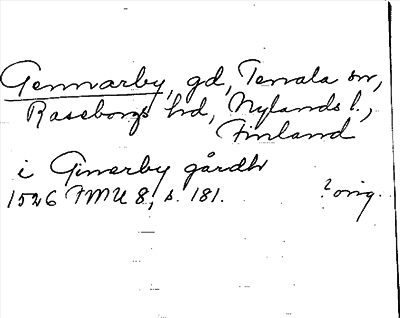 Gennarby, gd, Tenala sn,
Raseborgs hd, Nylands l.,
Finland
i Ginarby gårdh
1526 FMU 8, s. 181. ? orig.